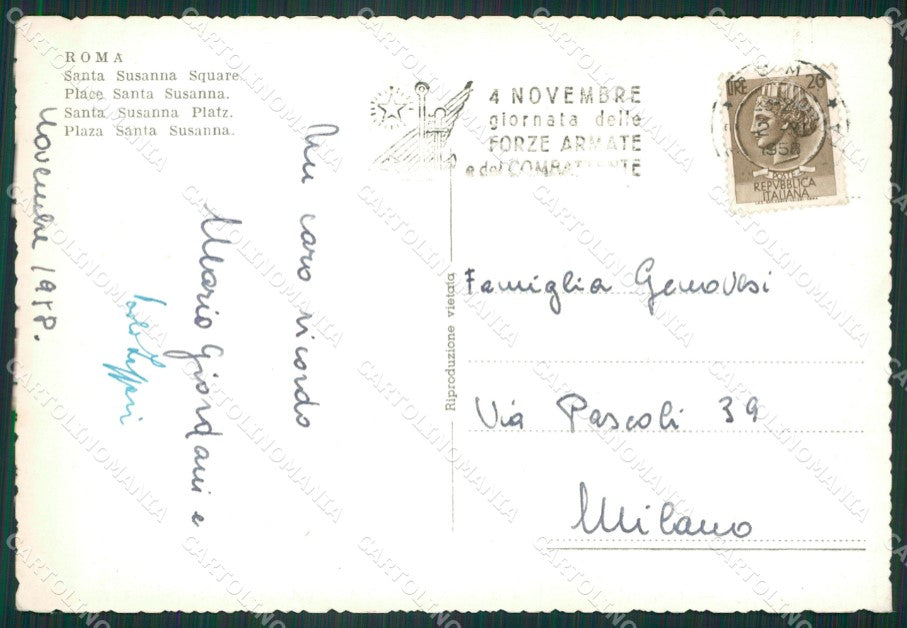 ROMA
Santa Susanna Square.
Place Santa Susanna.
Santa Susanna Platz.
Plaza Santa Susanna.
Novembre 1958.
Un caro ricordo
Mario Giordani e
4 NOVEMBRE
giornata delle
FORZE ARMATE
e del COMBATTENTE
LIRE 20
1958
POSTE
REPVBBLICA
ITALIANA
Riproduzione vietata
Famiglia Genovesi
Via Pascoli 39
Milano
CARTOLINOMANIA